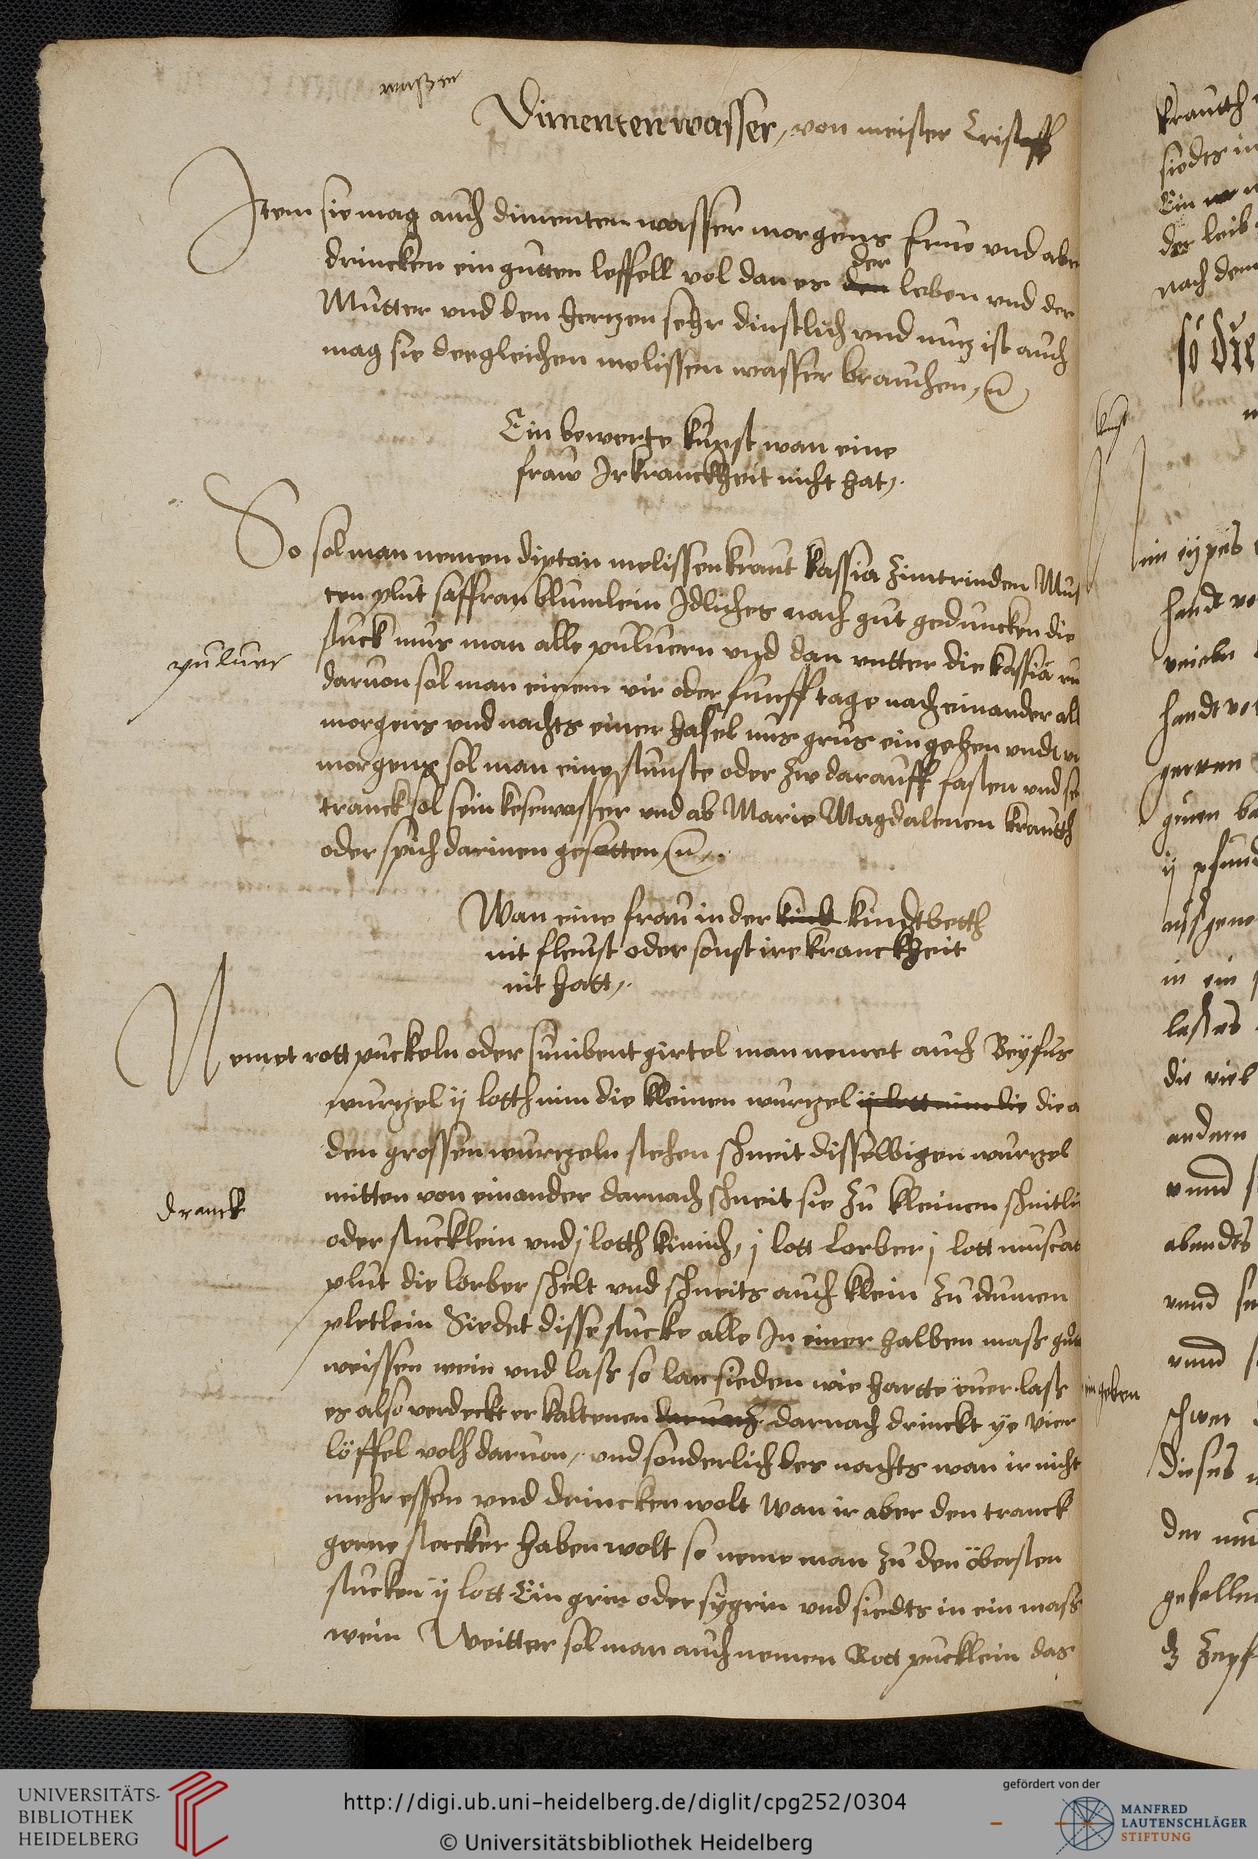 wasser
Dimentenwasser, von meister Cristoff
Item sie mag auch dimenten wasser morgens frue vnd aben
drincken ein gutten leffell vol dan es den der leben vnd der
Mutter vnd den hertzen sehr dinstlich vnd nutz ist auch
mag sie dergleichen melissen wasser brauchen,
Ein bewerte kunst wan eine
fraw Ir kranckheit nicht hat,
So sol man nemen diptan melissenkraut kassia Zimtrinden Mus
ten plut saffran blumlein Idliches nach gut geduncken die
stuck mus man alle puluern vnd dan vntter die kassia
puluer
daruon sol man einem vir oder funff tage nach einander all
morgens vnd nachts einer hasel nus gros ein geben vndt
morgens sol man eine stunste oder Zw darauff fasten vnd
tranck sol sein kesewasser vnd ab Marie Magdalenen krautth
oder spich darinnen gesotten
Wan eine frau in der kind kindtbetth
nit fleust oder sonst ire kranckheit
nit hatt,
Nemet rott puckeln oder sunibent girtel man nennet auch Beyfus
wurtzel ij lotth nim die kleinen wurtzel ij lott nim die die a
den grossen wurtzeln stehen schneit disselbigen wurtzel
mitten von einander darnach schneit sie Zu kleinen schnitli
dranck
oder stucklein vnd j lotth kimich, j lott lorber j lott muscat
plut die lorber schelt vnd schneits auch klein Zu dunnen
pletlein Siedet disse stucke alle In einer halben mass gut
weissen wein vnd lass so lan sieden wie hartte eyer lass
es also verdeckt er kaltenen darnach darnach drinckt ye vier
löffel voll daruon, vnd sonderlich des nachts wan ir nicht
mehr essen vnd drincken wolt Wan ir aber den tranck
gerne stercker haben wolt so neme man Zu den öbersten
stucken ij lott Ein grin oder sygrin vnd siedts in ein mass
wein Weitter sol man auch nemen Rott pucklein das
krautth
siedts in
Ein
des leib
nach dem
so die
kunst
handt vo
handt vo
ij pfund
in ein
die viel
andern
vnnd
abendts
vnnd
vnnd
ein geben
dieses
gefallen
UNIVERSITÄTS-
BIBLIOTHEK
HEIDELBERG
http://digi.ub.uni-heidelberg.de/diglit/cpg252/0304
© Universitätsbibliothek Heidelberg
gefördert von der
MANFRED
LAUTENSCHLÄGER
STIFTUNG